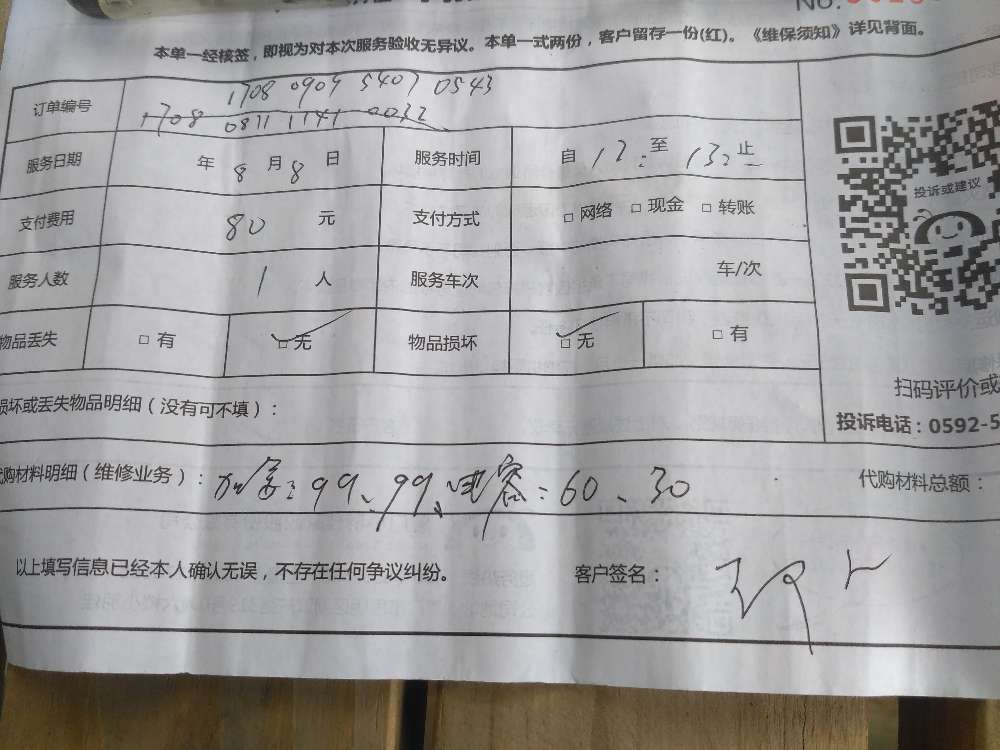 NO.
本单一经核签，即视为对本次服务验收无异议。本单一式两份，客户留存一份(红)。《维保须知》详见背面。
订单编号 1708 0904 5407 0543
1708 0811 1141 0032
服务日期 年 8 月 8 日 服务时间 自 12: 至 13: 止
支付费用 80 元 支付方式 □ 网络 □ 现金 □ 转账
服务人数 1 人 服务车次 车/次
物品丢失 □ 有 □无 物品损坏 □无 □ 有
投诉或建议
扫码评价或
投诉电话：0592-5
损坏或丢失物品明细（没有可不填）：
代购材料明细（维修业务）： 99、99、电容：60、30 代购材料总额：
以上填写信息已经本人确认无误，不存在任何争议纠纷。 客户签名：